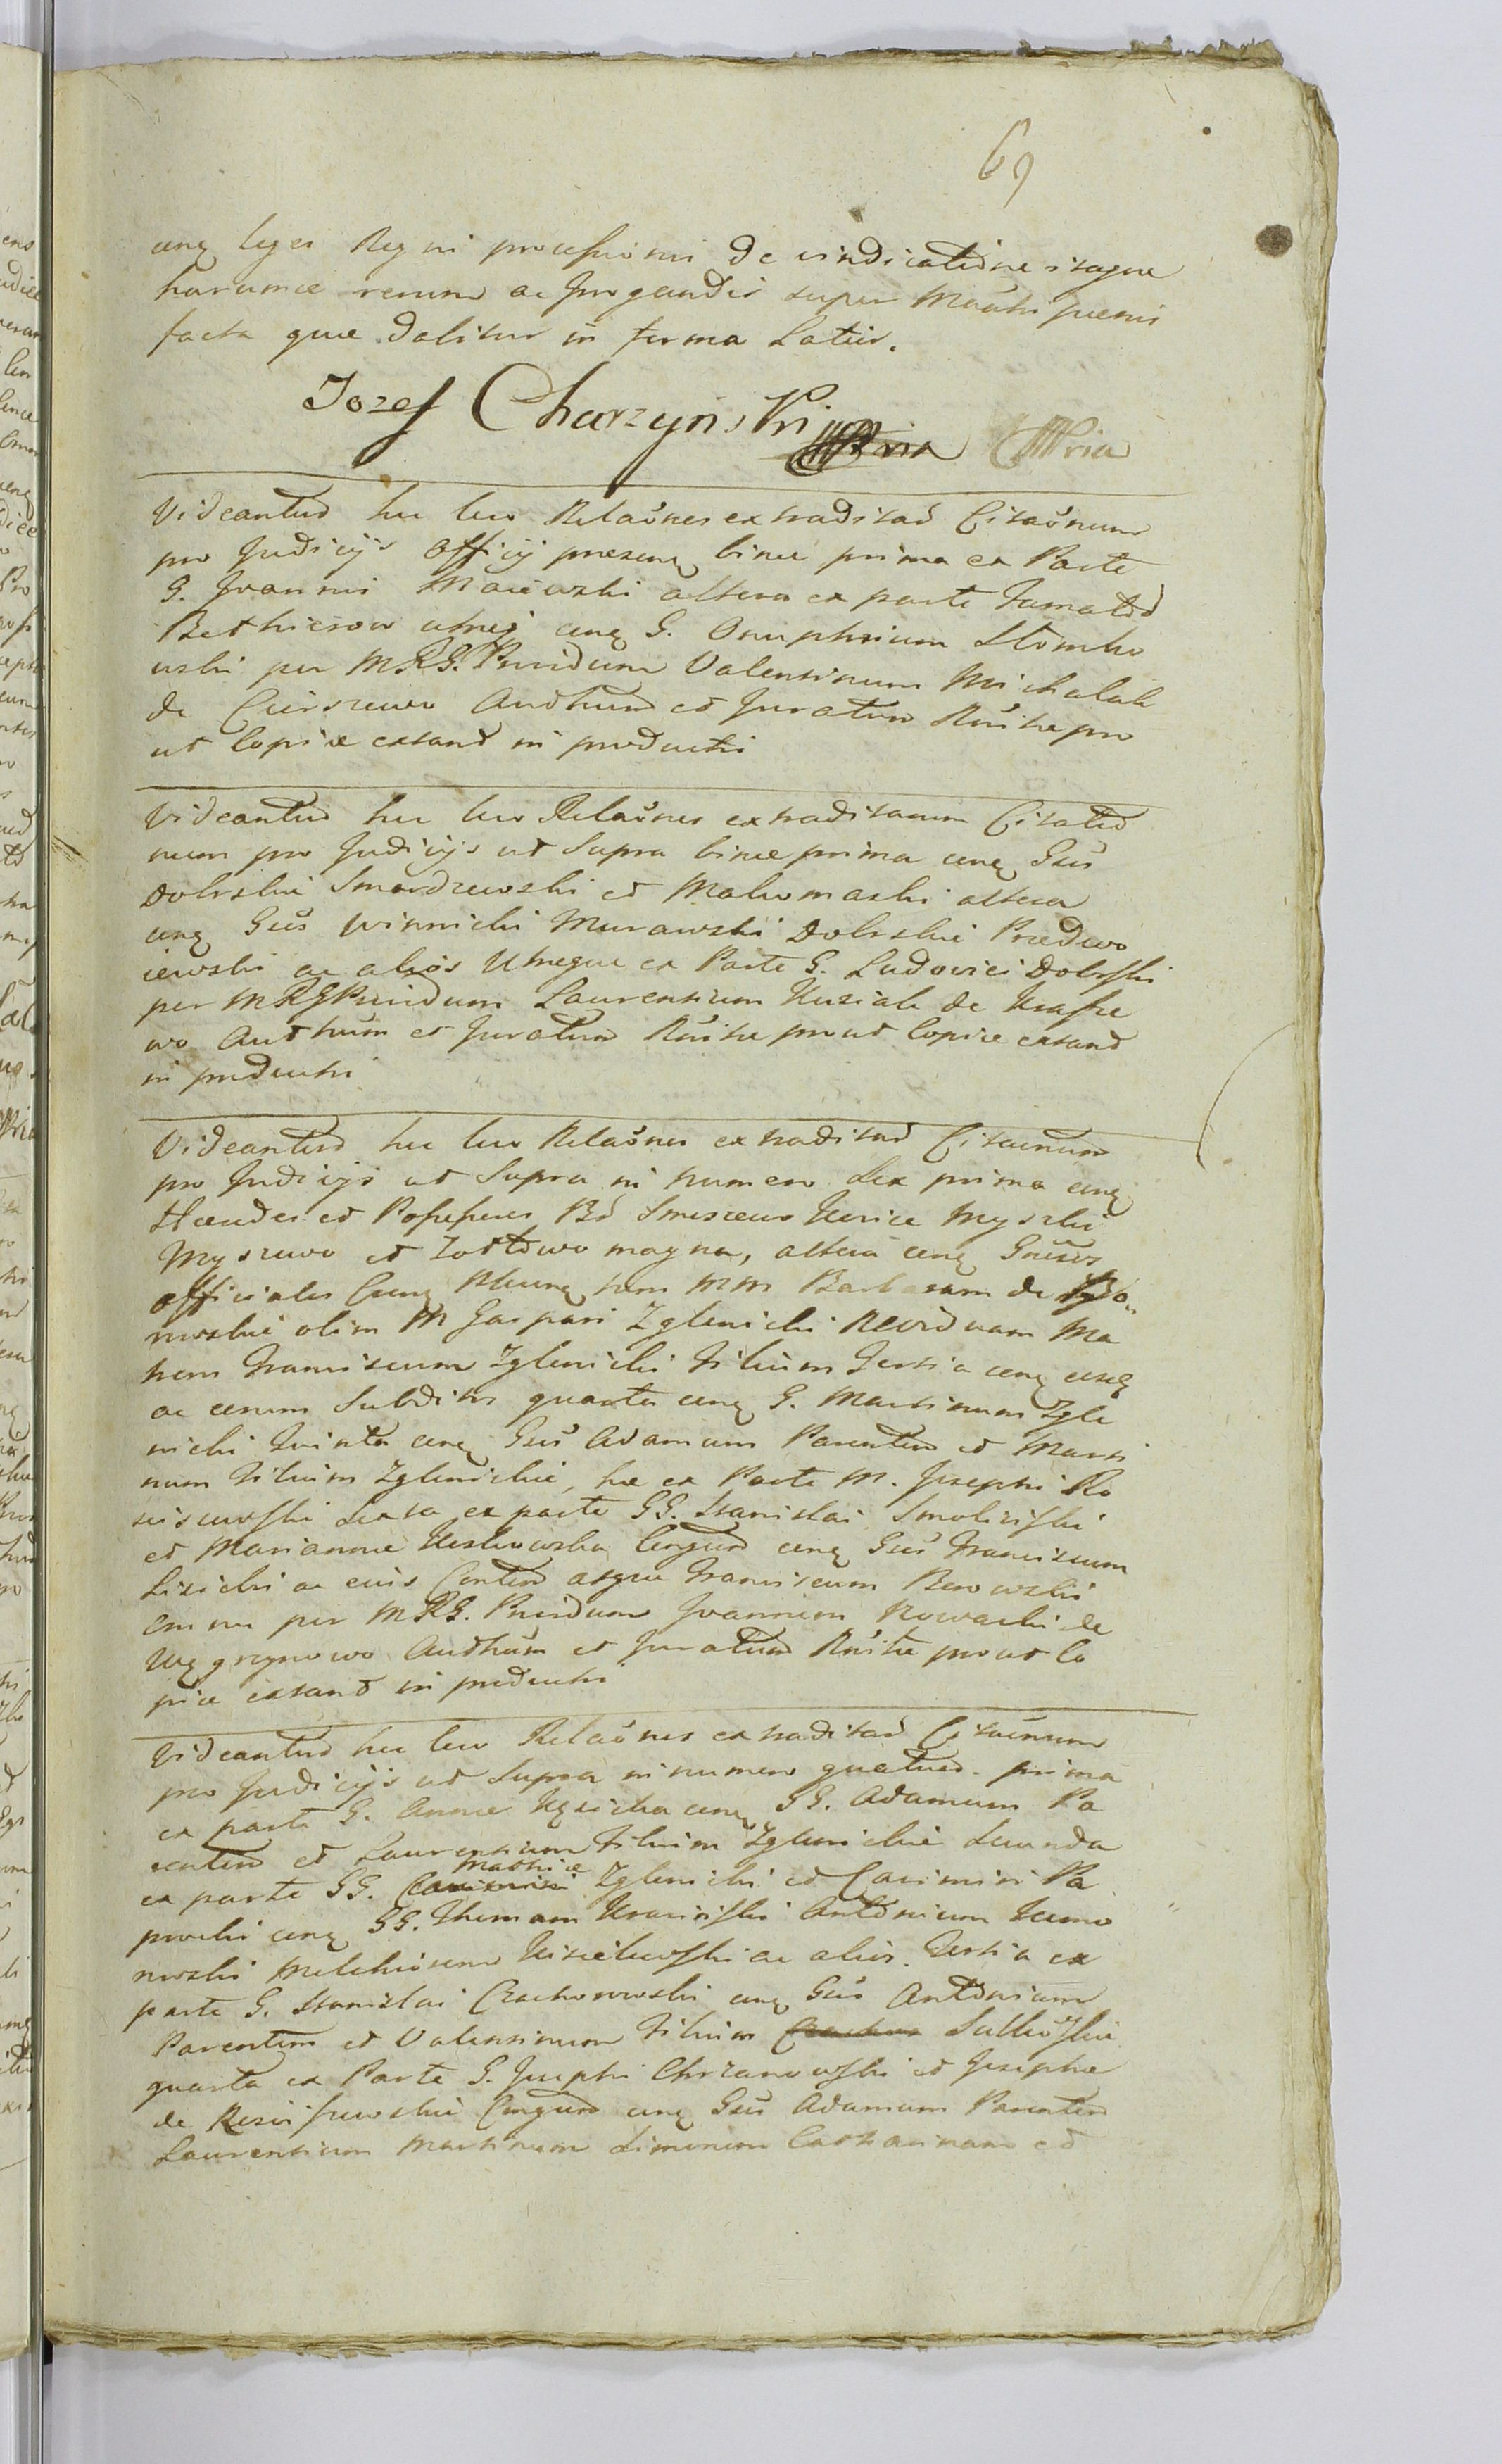 69
cunq leges Regni processivimi de vindicatione itaque
harumce rerum ac Irrogandis super
facta que dabitur in forma Latiu.
Jozef Charzynski mpria mpria
Videantur huc leu Relaönes extraditar Citaönum
pro Judicijs Officij presenq binae prima ex Parte
G. Joannis Maiewski altera ex parte Famator
Bethierow utreq cunq G. Onuphrium Slombo
wski per MRG. Puridum Valentinum Michalak
de Cierszewo Authum et Juratum Rüitae pro
ut Copiae extant in producti
Videantur huc leu Relaönes extraditarum Citatio
num pro Judicijs ut Supra binae prima cunq Güs
Dobrskie Smardzewski et Malnomaski altera
cunq Güs Winnicki Murawski Dobrskie Przedwo
iewski ac alios Utreque ex Parte G. Ludovici Dobrski
per MRG Puridum Laurentium Kuziak de Krasze
wo Authum et Juratum Rüitae prout Copiae extant
in producti
Videantur huc leu Relaönes extraditar Citaönum
pro Judicijs ut Supra in numero Sex prima cunq
Haeredes et Possessores Bo Smeszewo Kurice Myszki
Myszewo et Zottowo magna, altera cunq Gnësos
Officiales Cunq tum MM Barbaram de
nowskie olim M Gaspari Zglenicki Reviduam Ma
trem Franciscum Zglenicki Filium Tertia cunq eosq
ac eorum Subditos quarta cunq G. Martinum Zgle
nicki Quinta cunq Güs Adamum Parentem et Marti
num Filium Zglenickie, hae ex Parte M. Josephi Ro
sciszewski Sexta ex parte GG. Stanislai Smolinski
et Marianne Keskowska Congum cunq Güs Franciscum
Lisicki ac eius Contem atque Franciscum Borowski
omnes per MRG. Puridum Joannem Nowacki de
Węgrzynowo Authum et Juratum Rüitae prout Co
piae extant in producti
Videantur huc leu Relaönes extraditar Citaönum
pro Judicijs ut Supra in numero quatuor. prima
ex parte G. Anne Kęsicka cunq GG. Adamum Pa
rentem et Laurentium Filium Zglenickie Secunda
ex parte GG. Casimiri Mathiae Zglenicki et Casimiri Pa
procki cunq GG. Thomam Krasinski Antonium Kumo
nowski Melchiorem Kisielewski ac alios. Tertia ex
parte G. Stanislai Czachorowski cunq Güs Antonium
Parentem et Valentinum Filium Sulkowskie
quarta ex Parte G. Josephi Chrzanowski et Josephae
de Rosciszewskie Congum cunq Güs Adamum Parentem
Laurentium Martinum Simonem Catharinam et